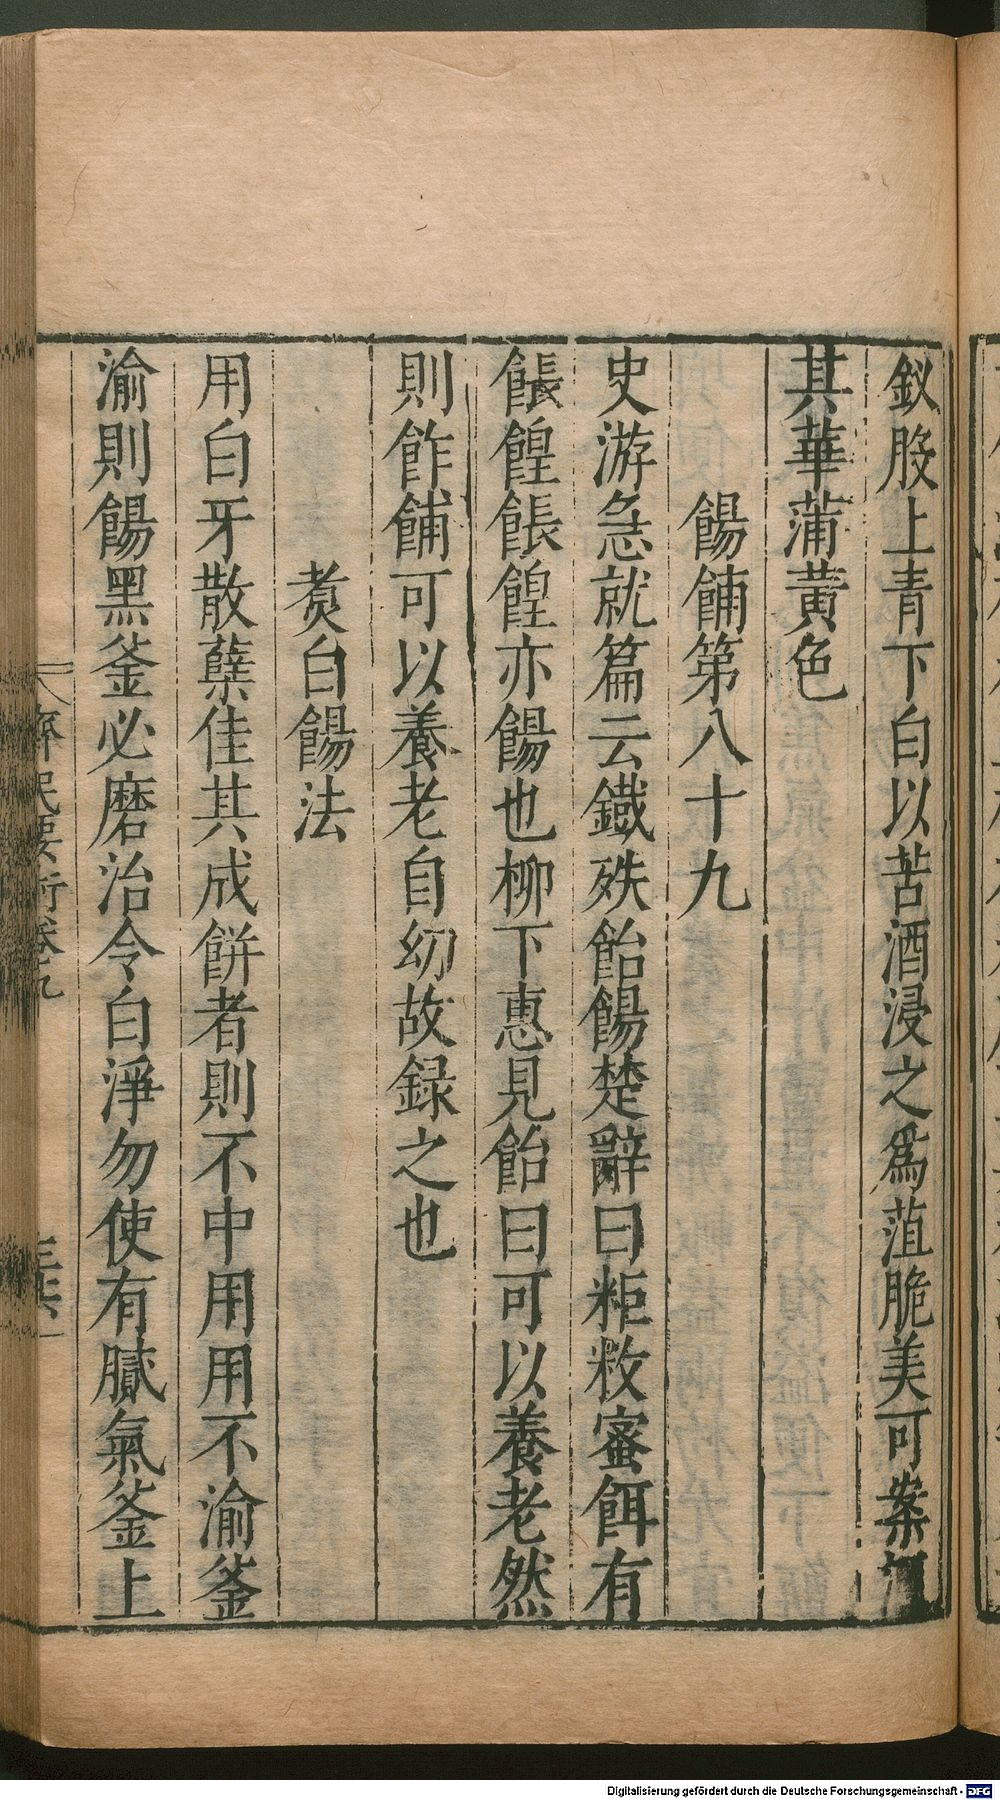 釵股上青下白以苦酒浸之爲菹脆美可案
其華蒲黄色
餳餔第八十九
史游急就篇云鐵殀飴餳楚辭曰粔敉蜜餌有
餦餭餦餭亦餳也柳下惠見飴曰可以養老然
則飵餔可以養老自幼故録之也
煑白餳法
用白牙散蘖佳其成餅者則不中用用不渝釜
渝則餳黑釜必磨治令白淨勿使有膩氣釜上
齊民要術卷九
Digitalisierung gefördert durch die Deutsche Forschungsgemeinschaft - DFG